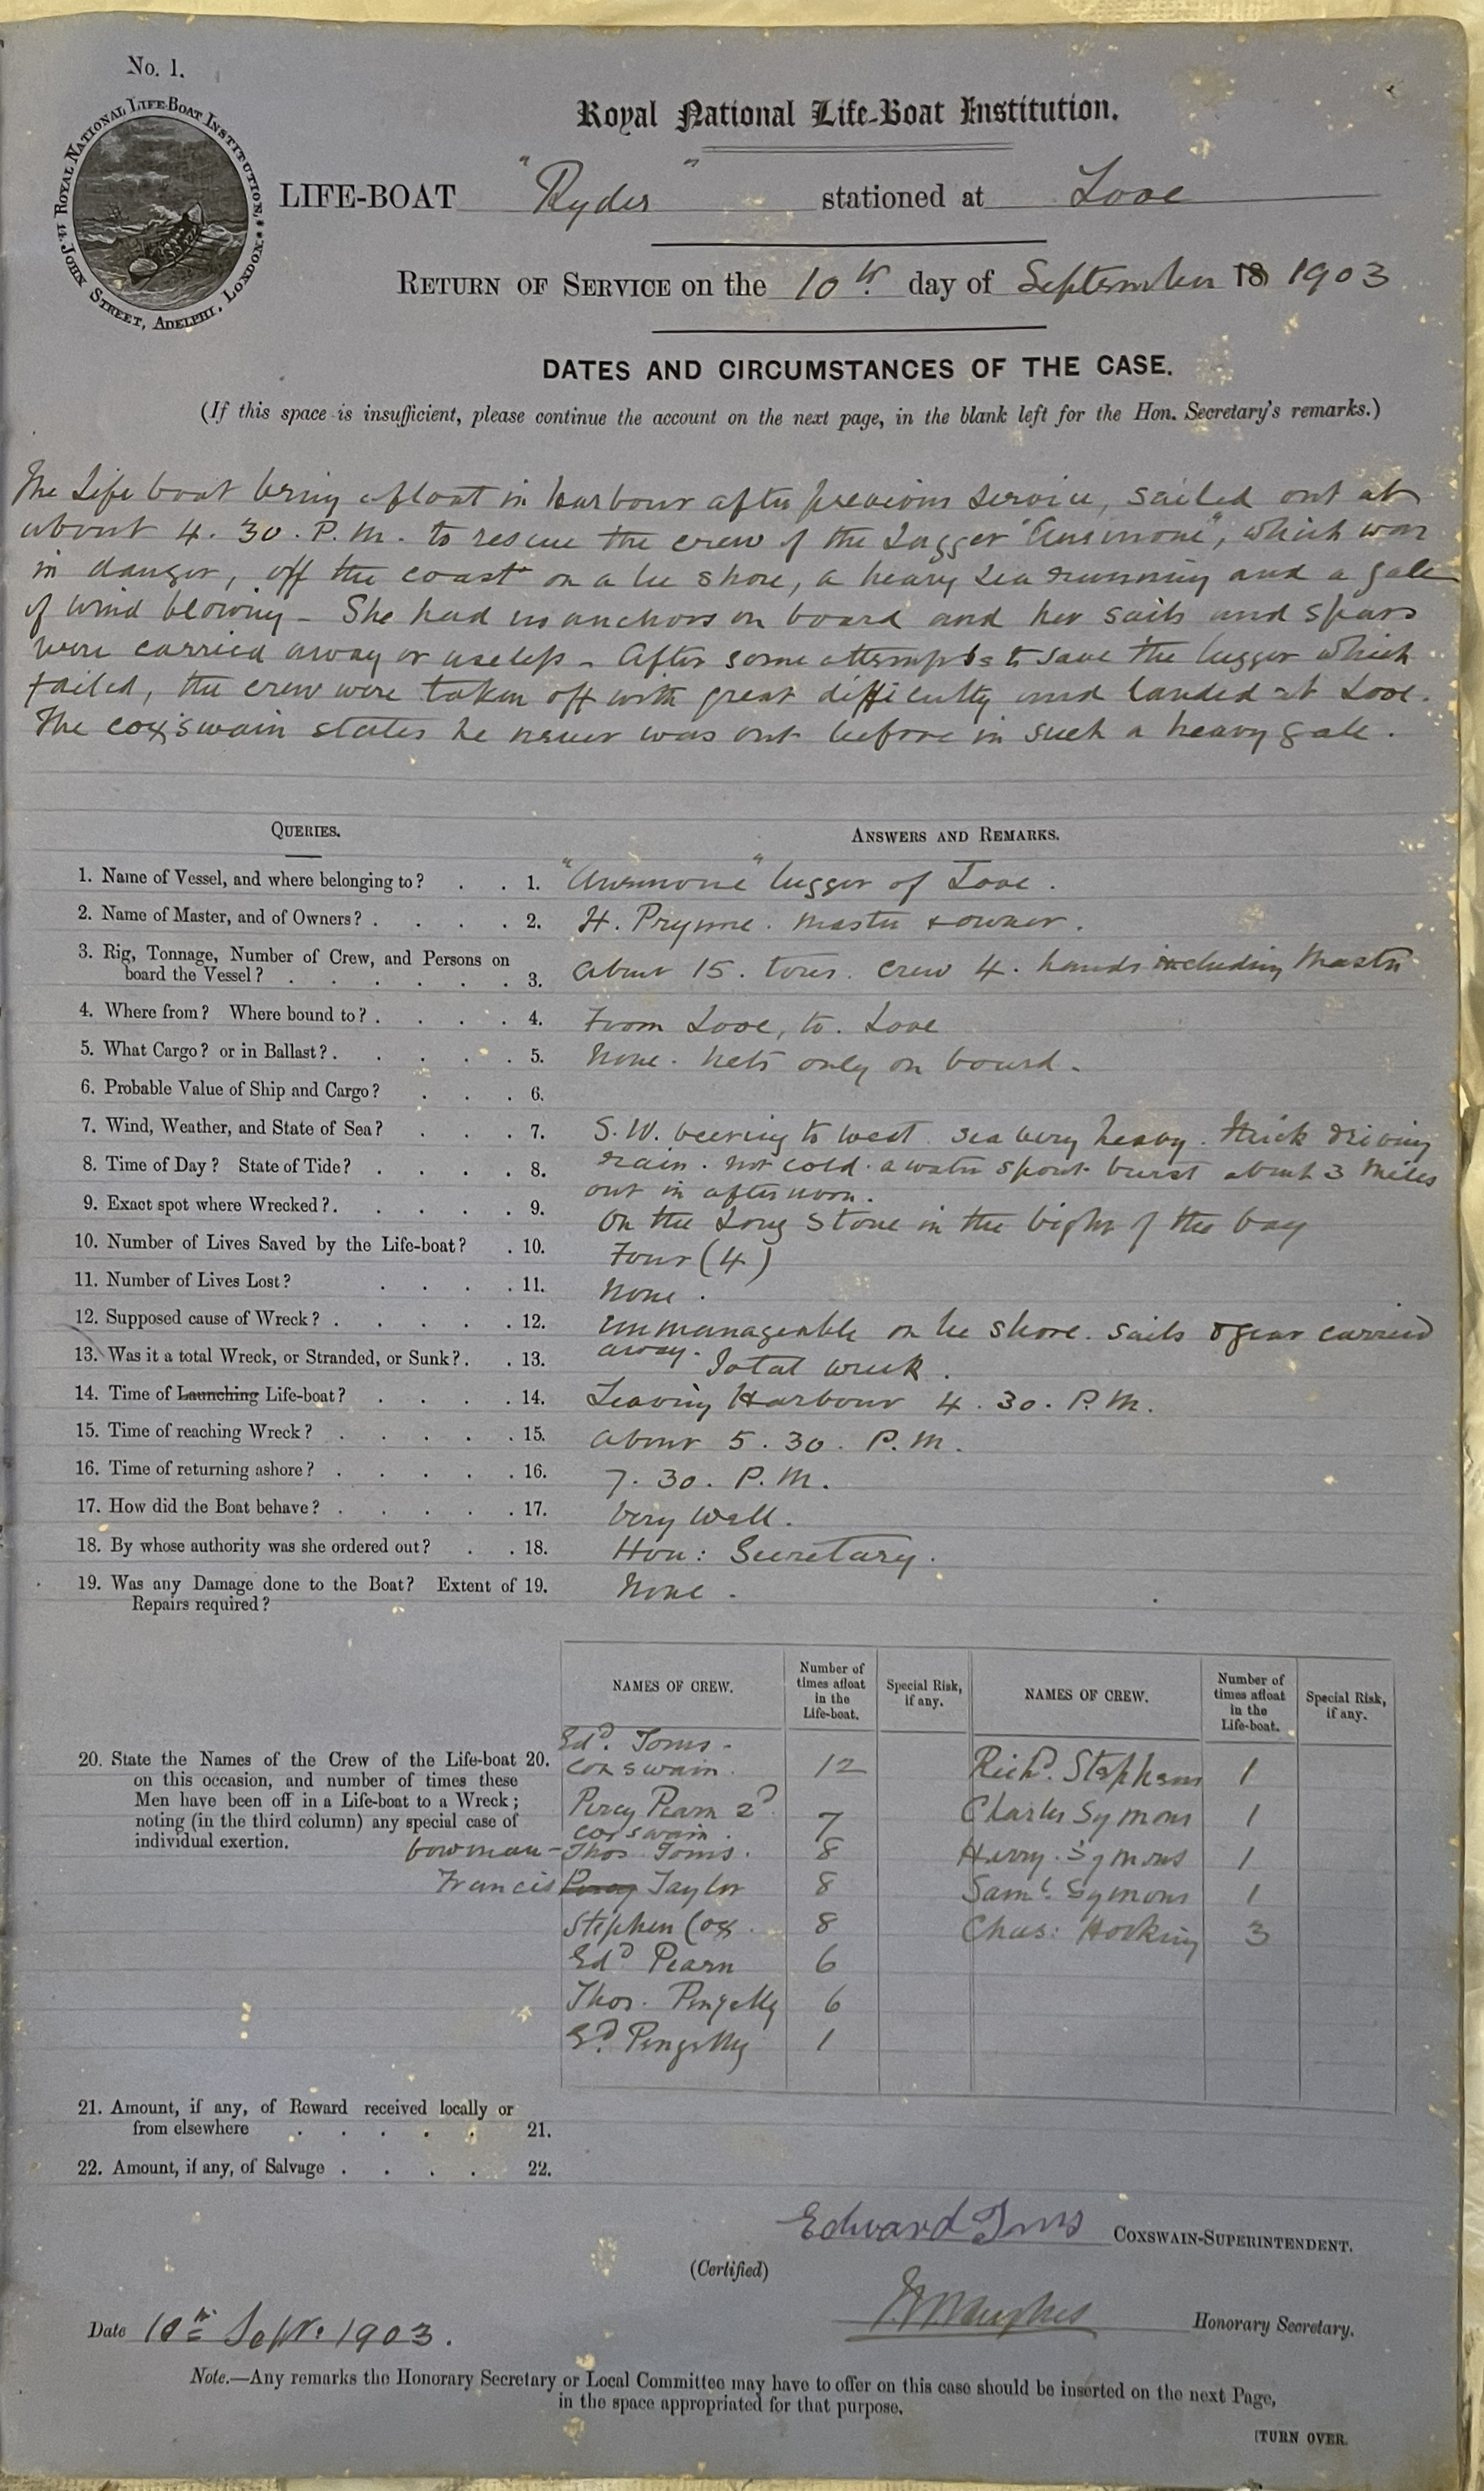 No. 1.
ROYAL NATIONAL LIFE-BOAT INSTITUTION, 14 JOHN STREET, ADELPHI, LONDON.
Royal National Life-Boat Institution.
LIFE-BOAT "Ryder" stationed at Looe
RETURN OF SERVICE on the 10th day of September 18 1903
DATES AND CIRCUMSTANCES OF THE CASE.
(If this space is insufficient, please continue the account on the next page, in the blank left for the Hon. Secretary's remarks.)
The Life boat being afloat in harbour after previous service, sailed out at
about 4.30.P.M. to rescue the crew of the Lugger "Anemone", which was
in danger, off the coast on a lee shore, a heavy sea running and a gale
of wind blowing - She had no anchors on board and her sails and spars
were carried away or useless - After some attempts to save the lugger which
failed, the crew were taken off with great difficulty and landed at Looe.
The coxswain states he never was out before in such a heavy gale.
QUERIES.
ANSWERS AND REMARKS.
1. Name of Vessel, and where belonging to? . . 1. "Anemone" lugger of Looe.
2. Name of Master, and of Owners? . . . . 2. H. Prynne. master & owner.
3. Rig, Tonnage, Number of Crew, and Persons on
board the Vessel? . . . . . . 3. About 15. tons. crew 4. hands including Master
4. Where from? Where bound to? . . . . 4. From Looe, to. Looe
5. What Cargo? or in Ballast? . . . . . 5. None. Nets only on board.
6. Probable Value of Ship and Cargo? . . . 6.
7. Wind, Weather, and State of Sea? . . . 7. S.W. veering to west. sea very heavy. thick driving
8. Time of Day? State of Tide? . . . . 8. rain. not cold. a water spout burst about 3 miles
out in afternoon.
9. Exact spot where Wrecked? . . . . . 9. On the Long Stone in the bight of the bay
10. Number of Lives Saved by the Life-boat? . 10. Four (4)
11. Number of Lives Lost? . . . . 11. None.
12. Supposed cause of Wreck? . . . . . 12. Unmanageable on lee shore. sails & gear carried
away.
13. Was it a total Wreck, or Stranded, or Sunk? . . 13. Total wreck.
14. Time of Launching Life-boat? . . . . 14. Leaving Harbour 4.30.P.M.
15. Time of reaching Wreck? . . . . . 15. About 5.30. P.M.
16. Time of returning ashore? . . . . . 16. 7.30. P.M.
17. How did the Boat behave? . . . . . 17. Very Well.
18. By whose authority was she ordered out? . . 18. Hon: Secretary.
19. Was any Damage done to the Boat? Extent of 19. None.
Repairs required?
NAMES OF CREW. Number of times afloat in the Life-boat. Special Risk, if any. NAMES OF CREW. Number of times afloat in the Life-boat. Special Risk, if any.
20. State the Names of the Crew of the Life-boat 20.
on this occasion, and number of times these
Men have been off in a Life-boat to a Wreck;
noting (in the third column) any special case of
individual exertion.
Edd. Toms -
coxswain. 12 Richd. Stephens 1
Percy Pearn 2d
coxswain. 7 Charles Symons 1
bowman - Thos. Toms. 8 Henry Symons 1
Francis Percy Taylor 8 Saml. Symons 1
Stephen Cox. 8 Chas: Hocking 3
Edd Pearn 6
Thos. Pengelly 6
Ed. Pengelly 1
21. Amount, if any, of Reward received locally or
from elsewhere . . . . . 21.
22. Amount, if any, of Salvage . . . . 22.
Edward Toms COXSWAIN-SUPERINTENDENT.
(Certified)
Honorary Secretary.
Date 10th Sept. 1903.
Note.—Any remarks the Honorary Secretary or Local Committee may have to offer on this case should be inserted on the next Page,
in the space appropriated for that purpose.
[TURN OVER.